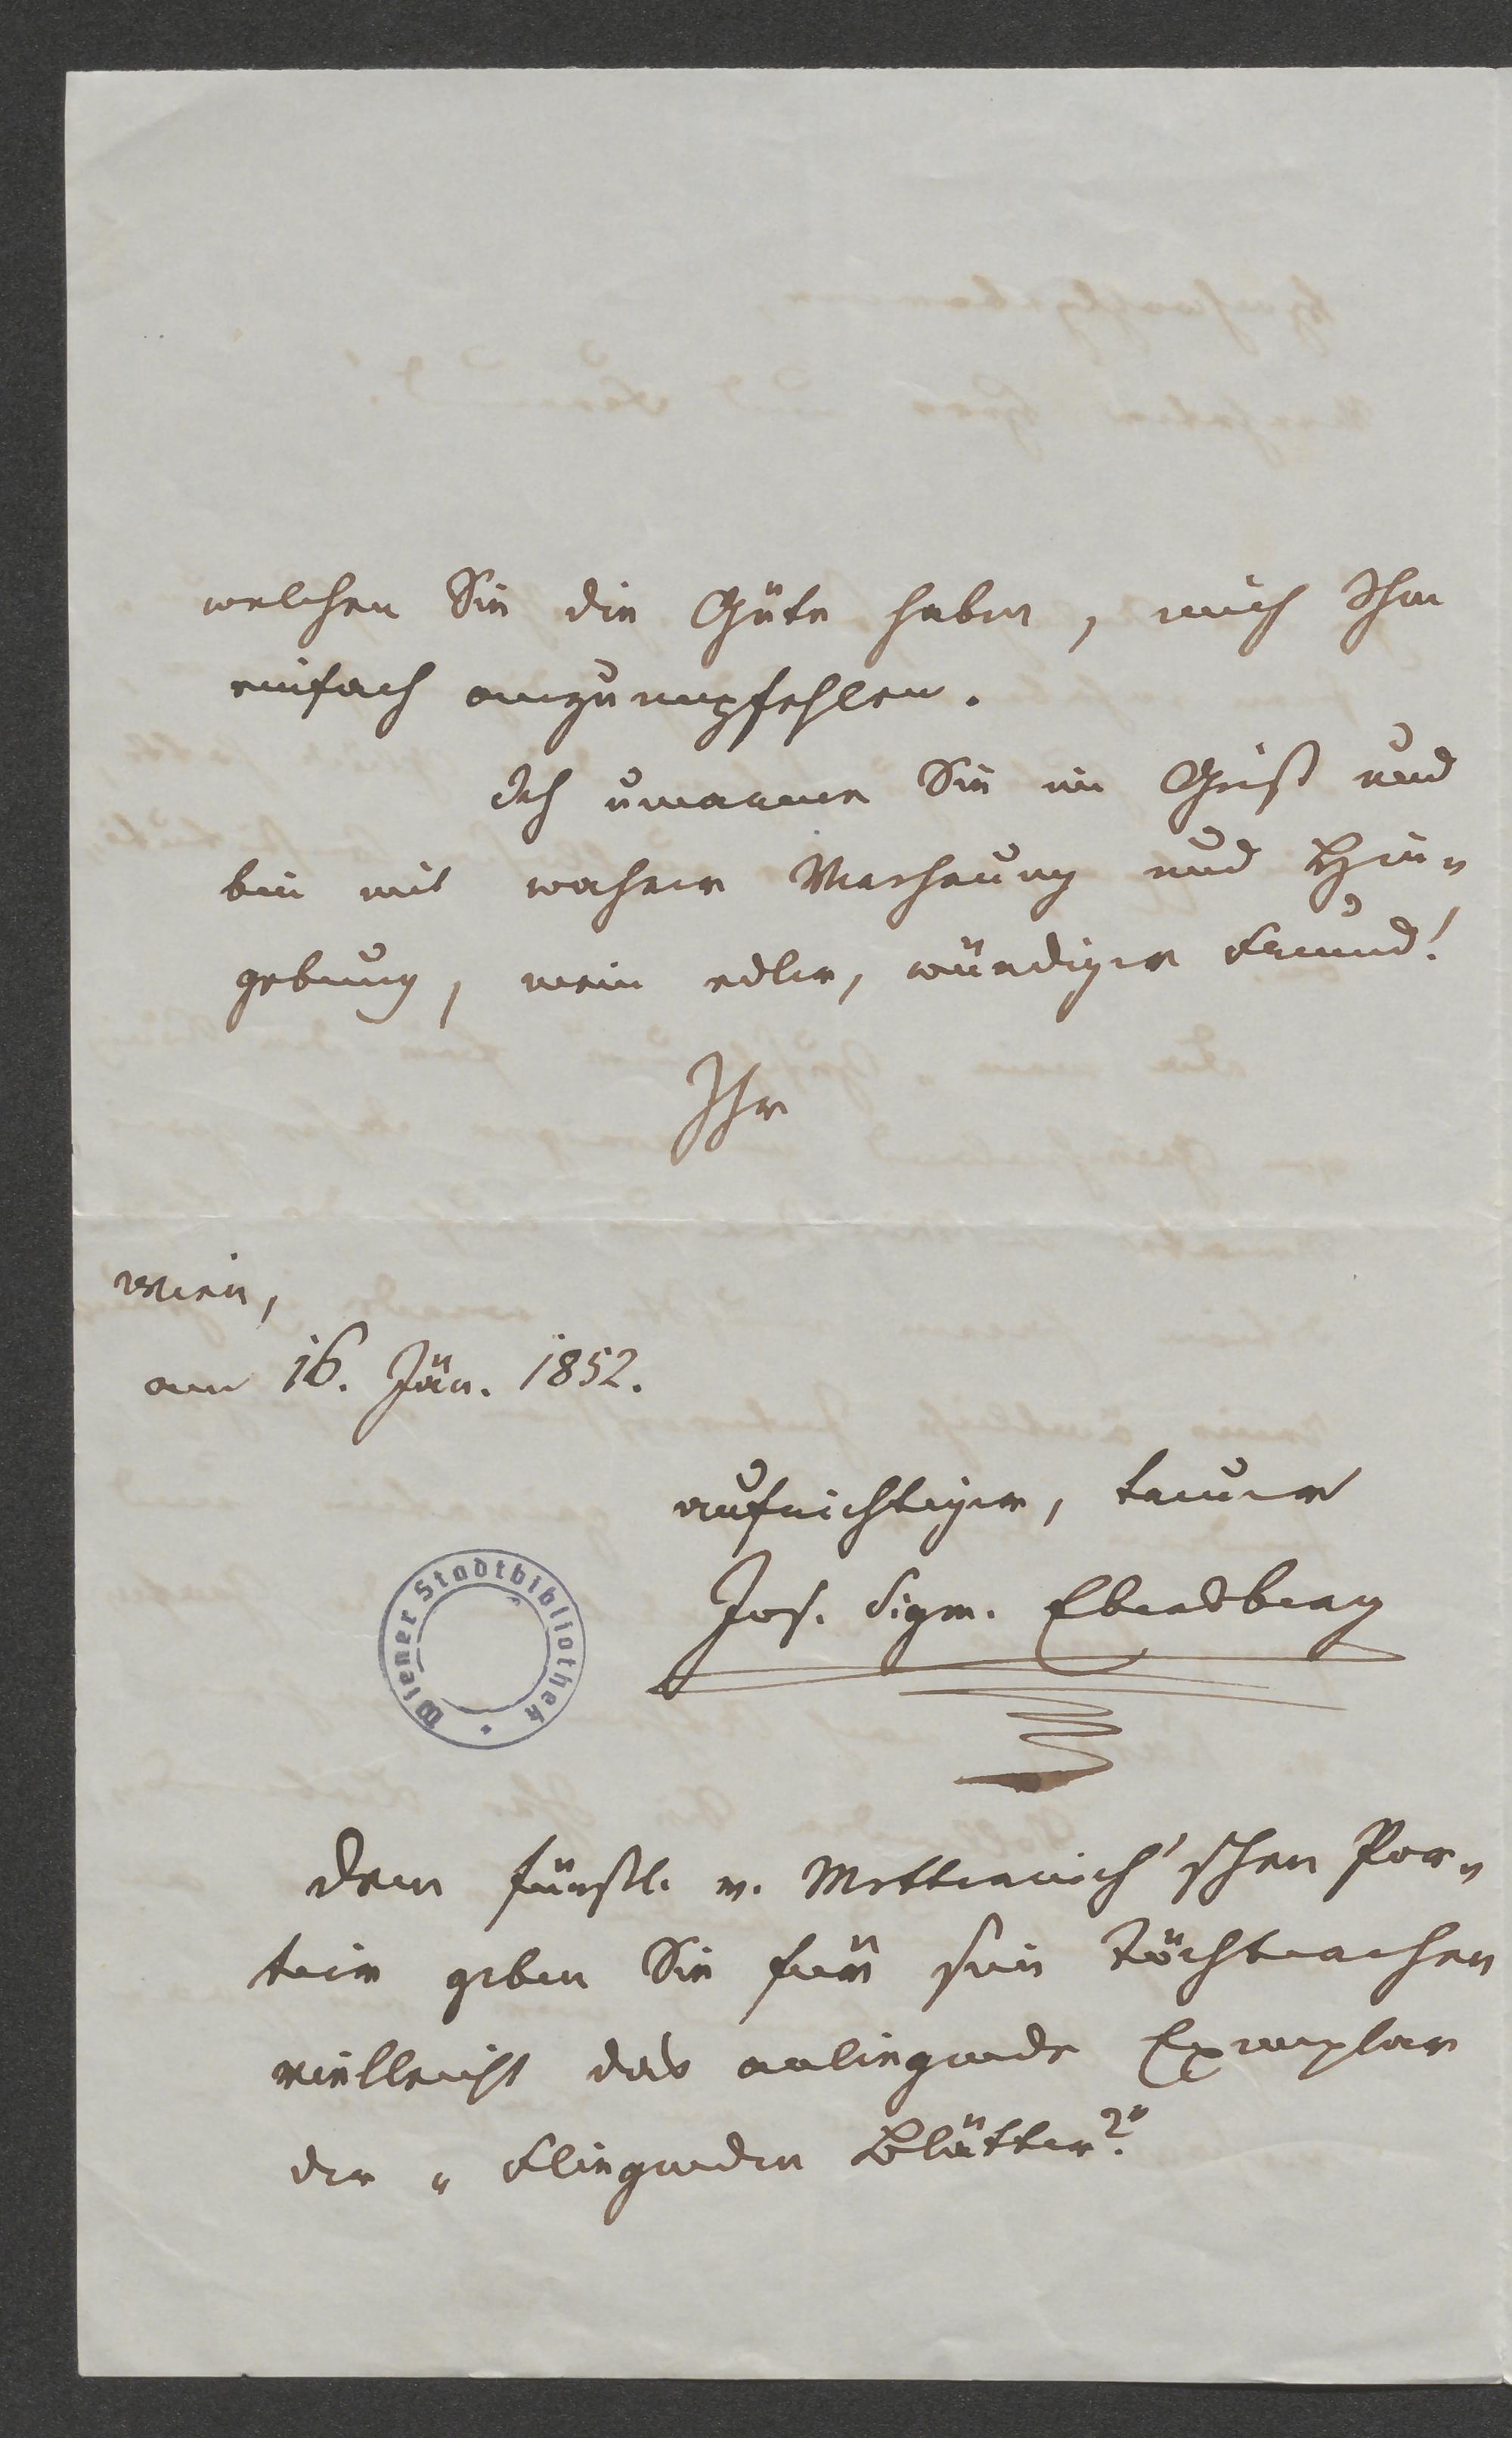 welchen Sie die Güte haben, mich Ihm
einfach anzuempfehlen.
Ich umarme Sie im Geist und
bin mit wahrer Verehrung und Hin„
gebung, mein edler, würdiger Freund!
Ihr
Wien,
am 16. Jän. 1852.
aufrichtiger, treuer
Jos. Sigm. Ebersberg
Wiener Stadtbibliothek
Dem fürstl. v. Metternich'schen Por„
teier geben Sie für sein Töchterchen
vielleicht das anliegende Exemplar
der „Fliegenden Blätter?"